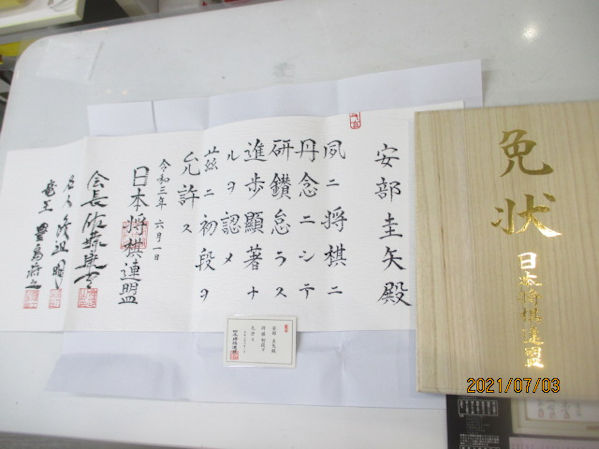 安部圭矢殿
夙ニ将棋ニ
丹念ニシテ
研鑽怠ラス
進歩顯著ナ
ルヲ認メ
茲ニ初段ヲ
允許ス
令和三年六月一日
日本将棋連盟
会長佐藤康光
名人渡辺明
竜王豊島将之
免状
日本将棋連盟
2021/07/03